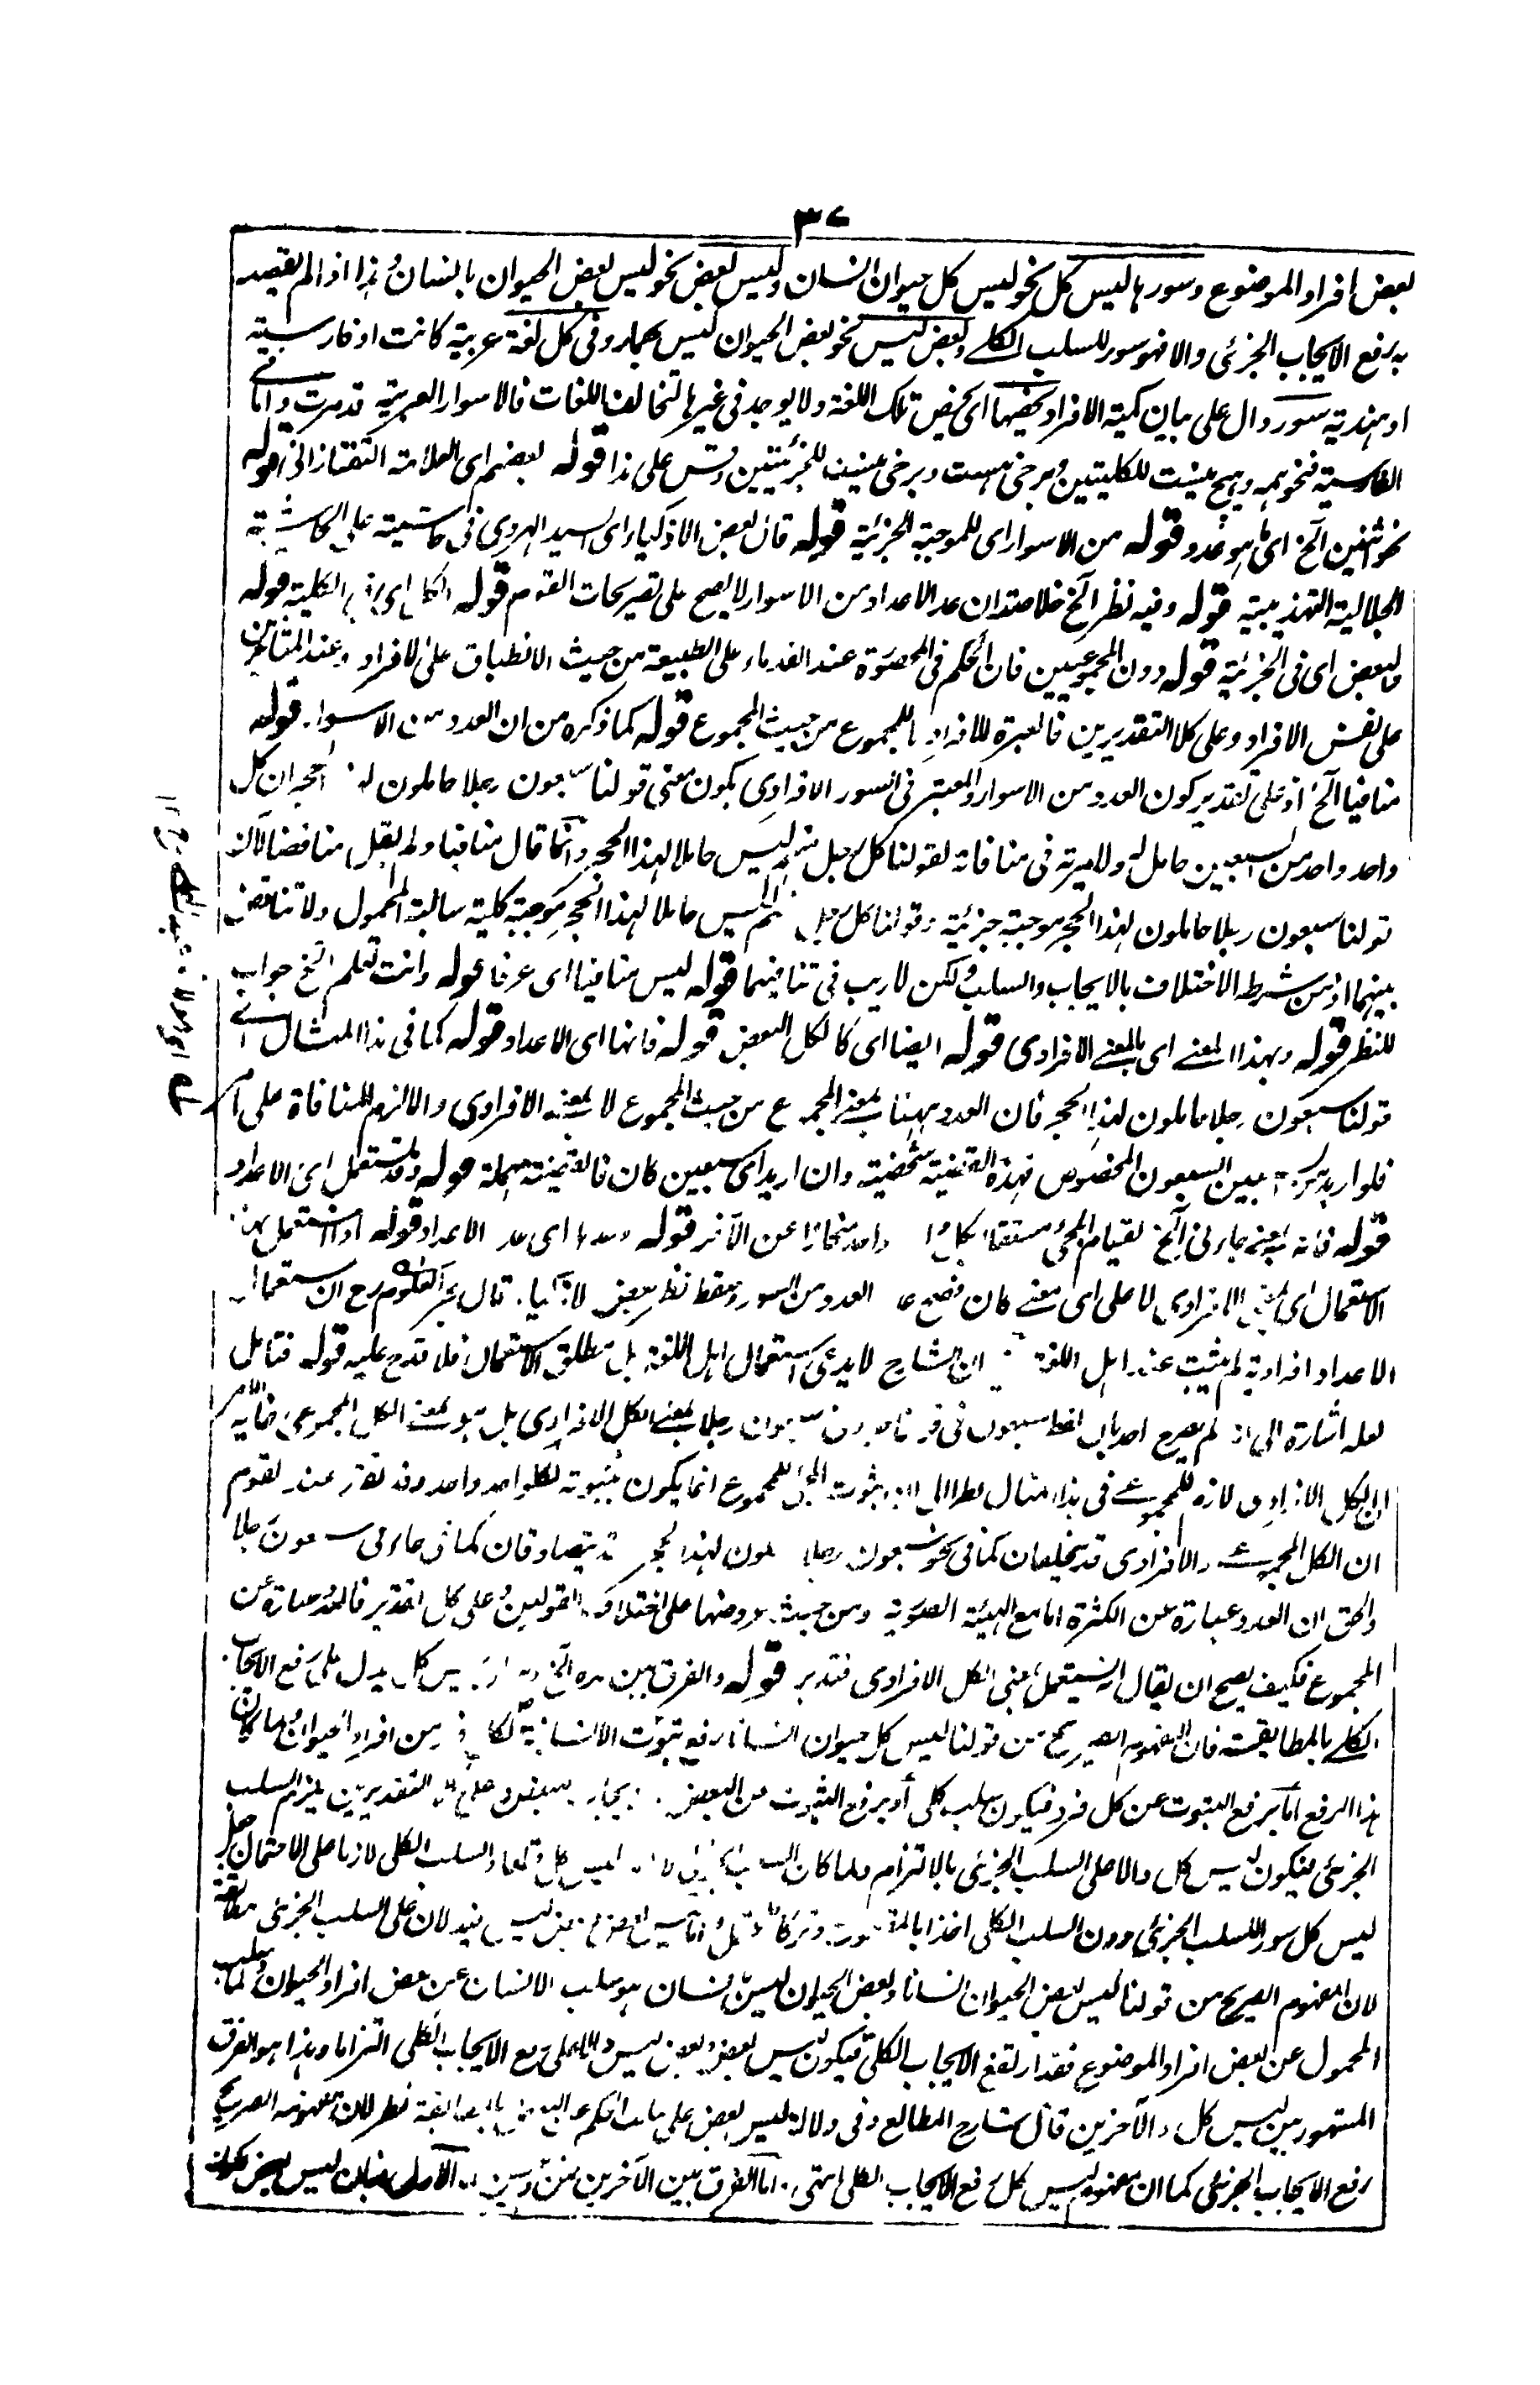 ٣٧
بعض افراد الموضوع وسورها ليس كل نحو ليس كل حيوان انسان وليس بعض نحو ليس بعض الحيوان بانسان هذا اذا لم يقصد
به رفع الايجاب الجزئى والا فهو سور للسلب الكلى وبعض ليس نحو بعض الحيوان ليس بحمار وفى كل لغة عربية كانت او فارسية
او هندية سور دال على بيان كمية الافراد يخصها اى يخص تلك اللغة ولا يوجد فى غيرها لتخالف اللغات فالاسوار العربية قد مرت واما
الفارسية فنحو همه وهيچ نيست للكليتين وبرخى هست وبرخى نيست للجزئيتين وقس على هذا قوله بعضهم اى العلامة التفتازانى قوله
نحو اثنين آلخ اى ما هو عدد قوله من الاسوار اى للموجبة الجزئية قوله قال بعض الاذكياء اى السيد الهروى فى حاشيته على الحاشية
الجلالية التهذيبية قوله وفيه نظر آلخ خلاصته ان عد الاعداد من الاسوار لا يصح على تصريحات القوم قوله الكل اى فى الكلية قوله
والبعض اى فى الجزئية قوله دون المجموعيين فان الحكم فى المحصورة عند القدماء على الطبيعة من حيث الانطباق على الافراد وعند المتأخرين
على نفس الافراد وعلى كلا التقديرين فالعبرة للافراد لا للمجموع من حيث المجموع قوله كما ذكره من ان العدد من الاسوار قوله
منافيا آلخ اذ على تقدير كون العدد من الاسوار والمعتبر فى السور الافرادى يكون معنى قولنا سبعون رجلا حاملون لهذا الحجر ان كل
واحد واحد من السبعين حامل له ولا مرية فى منافاته لقولنا كل رجل منهم ليس حاملا لهذا الحجر وانما قال منافيا ولم يقل مناقضا لان
قولنا سبعون رجلا حاملون لهذا الحجر موجبة جزئية وقولنا كل رجل منهم ليس حاملا لهذا الحجر موجبة كلية سالبة المحمول ولا تناقض
بينهما اذ من شرطه الاختلاف بالايجاب والسلب ولكن لا ريب فى تنافيهما قوله ليس منافيا اى عرفا قوله وانت تعلم آلخ جواب
للنظر قوله وبهذا المعنى اى بالمعنى الافرادى قوله ايضا اى كالكل والبعض قوله فانها اى الاعداد قوله كما فى هذا المثال اى
قولنا سبعون رجلا حاملون لهذا الحجر فان العدد ههنا بمعنى المجموع من حيث المجموع لا بمعنى الافرادى والا لزم المنافاة على ما مر
فلو اريد بسبعين السبعون المخصوص فهذه القضية شخصية وان اريد اى سبعين كان فالقضية مهملة قوله وقد تستعمل اى الاعداد
قوله فانه بمعنى جاءنى آلخ لقيام المجئ مستقلا بكل واحد منحازا عن الآخر قوله وعدها اى عد الاعداد قوله اذا استعمل بهذا
الاستعمال اى بمعنى الافرادى لا على اى معنى كان فصح عد العدد من السور وسقط نظر بعض الاذكياء قال بحر العلوم رح ان استعمال
الاعداد افرادية لم يثبت عند اهل اللغة ان الشارح لا يدعى استعمال اهل اللغة بل مطلق الاستعمال فلا قدح عليه قوله فتأمل
لعله اشارة الى انه لم يصرح احد بان لفظ سبعون فى قولنا جاءنى سبعون رجلا بمعنى الكل الافرادى بل هو بمعنى الكل المجموعى غاية الامر
ان الكل الافرادى لازم للمجموعى فى هذا المثال نظرا الى ان ثبوت المجئ للمجموع انما يكون بثبوته لكل واحد واحد وقد تقرر عند القوم
ان الكل المجموعى والافرادى قد يتخلفان كما فى نحو سبعون رجلا حاملون لهذا الحجر وقد يتصادقان كما فى جاءنى سبعون رجلا
والحق ان العدد عبارة عن الكثرة اما مع الهيئة الصورية ومن حيث عروضها على اختلاف القولين وعلى كل تقدير فالعدد عبارة عن
المجموع فكيف يصح ان يقال انه يستعمل بمعنى الكل الافرادى فتدبر قوله والفرق بين هذه آلخ ان ليس كل يدل على رفع الايجاب
الكلى بالمطابقة فان المفهوم الصريح من قولنا ليس كل حيوان انسانا رفع ثبوت الانسانية لكل فرد من افراد الحيوان ولما كان
هذا الرفع اما برفع الثبوت عن كل فرد فيكون سلب كلى أو برفع الثبوت عن البعض وعلى التقديرين يلزم السلب
الجزئى فيكون ليس كل دالا على السلب الجزئى بالالتزام ولما كان السلب الجزئى لازما والسلب الكلى لازما على الاحتمال جعل
ليس كل سورا للسلب الجزئى دون السلب الكلى اخذا بالمتيقن وتركا للمحتمل واما ليس بعض وبعض ليس فيدلان على السلب الجزئى مطابقة
لان المفهوم الصريح من قولنا ليس بعض الحيوان انسانا وبعض الحيوان ليس بانسان هو سلب الانسان عن بعض افراد الحيوان ولما سلب
المحمول عن بعض افراد الموضوع فقد ارتفع الايجاب الكلى فيكون ليس بعض وبعض ليس دالا على رفع الايجاب الكلى التزاما وهذا هو الفرق
المشهور بين ليس كل والآخرين قال شارح المطالع وفى دلالة ليس بعض على سلب الحكم عن البعض بالمطابقة نظر لان مفهومه الصريح
رفع الايجاب الجزئى كما ان مفهوم ليس كل رفع الايجاب الكلى انتهى واما الفرق بين الآخرين فمن وجهين الاول بان ليس بعض يكون